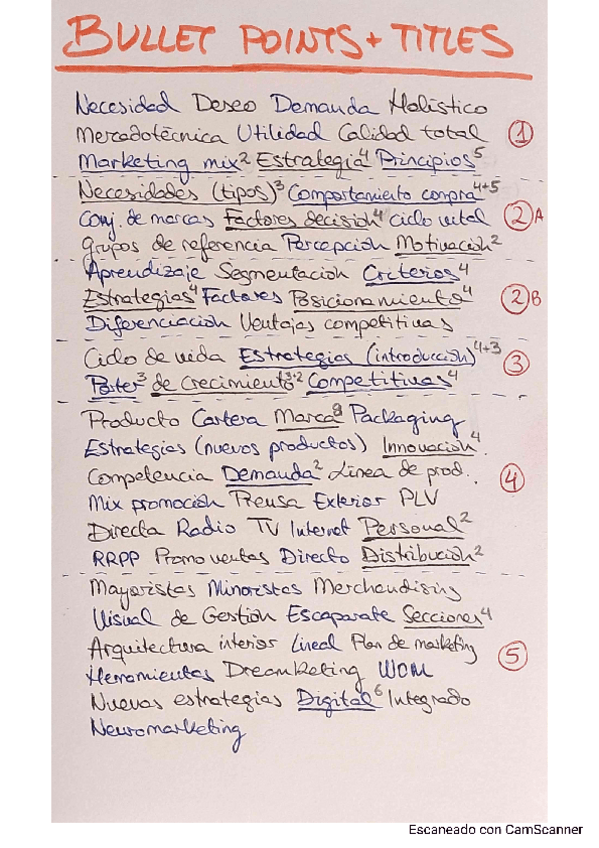 BULLET POINTS + TITLES
Necesidad Deseo Demanda Holístico
Mercadotécnica Utilidad Calidad total ①
Marketing mix² Estrategia⁴ Principios⁵
Necesidades (tipos)³ Comportamiento compra⁴⁺⁵
Conj. de marcas Factores decisión⁴ ciclo vital ②A
Grupos de referencia Percepción Motivación²
Aprendizaje Segmentación Criterios⁴
Estrategias⁴ Factores Posicionamiento⁴ ②B
Diferenciación Ventajas competitivas
Ciclo de vida Estrategias (introducción)⁴⁺³ ③
Porter³ de crecimiento³·² Competitivas⁴
Producto Cartera Marca⁸ Packaging
Estrategias (nuevos productos) Innovación⁴.
Competencia Demanda² Línea de prod. ④
Mix promoción Prensa Exterior PLV
Directa Radio TV Internet Personal²
RRPP Promo ventas Directo Distribución²
Mayoristas Minoristas Merchandising
Visual de Gestión Escaparate Secciones⁴
Arquitectura interior Lineal Plan de marketing ⑤
Herramientas Dreamketing WOM
Nuevas estrategias Digital⁶ Integrado
Neuromarketing
Escaneado con CamScanner